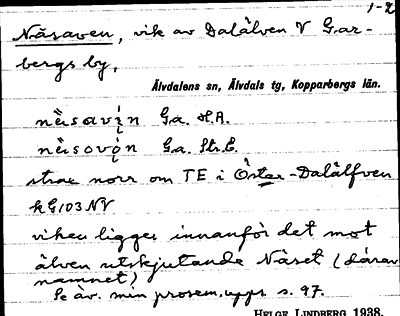 1-2
Näsaven, vik av Dalälven V Gar-
bergs by,
Älvdalens sn, Älvdals tg, Kopparbergs län.
Ga. H.A.
Ga. Str.E.
strax norr om TE i Öster-Dalälfven
kG103NV
viken ligger innanför det mot
älven utskjutande Näset (därav
namnet)
Se äv. min prosem.upps s. 97.
HELGE LINDBERG 1938.